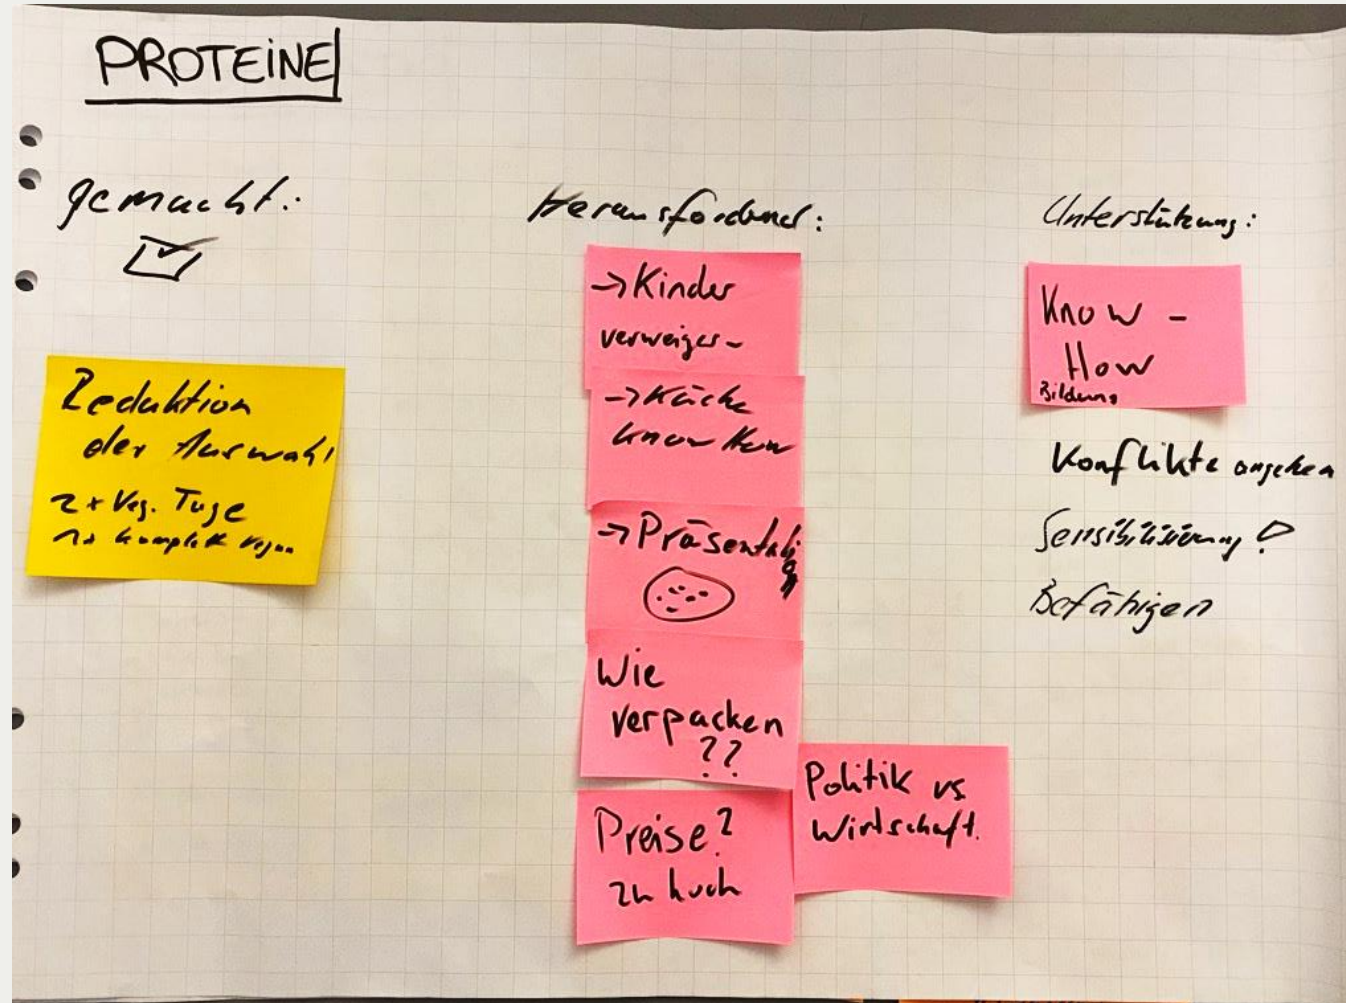 PROTEINE
gemacht:
Reduktion
der Auswahl
2x Veg. Tage
1x komplett vegan
Herausfordernd:
→Kinder
verweigern
→Küche
know How
→Präsentation
Wie
verpacken
??
Preise?
zu hoch
Politik vs
Wirtschaft.
Unterstützung:
Know-
How
Bildung
Konflikte angehen
Sensibilisierung?
Befähigen